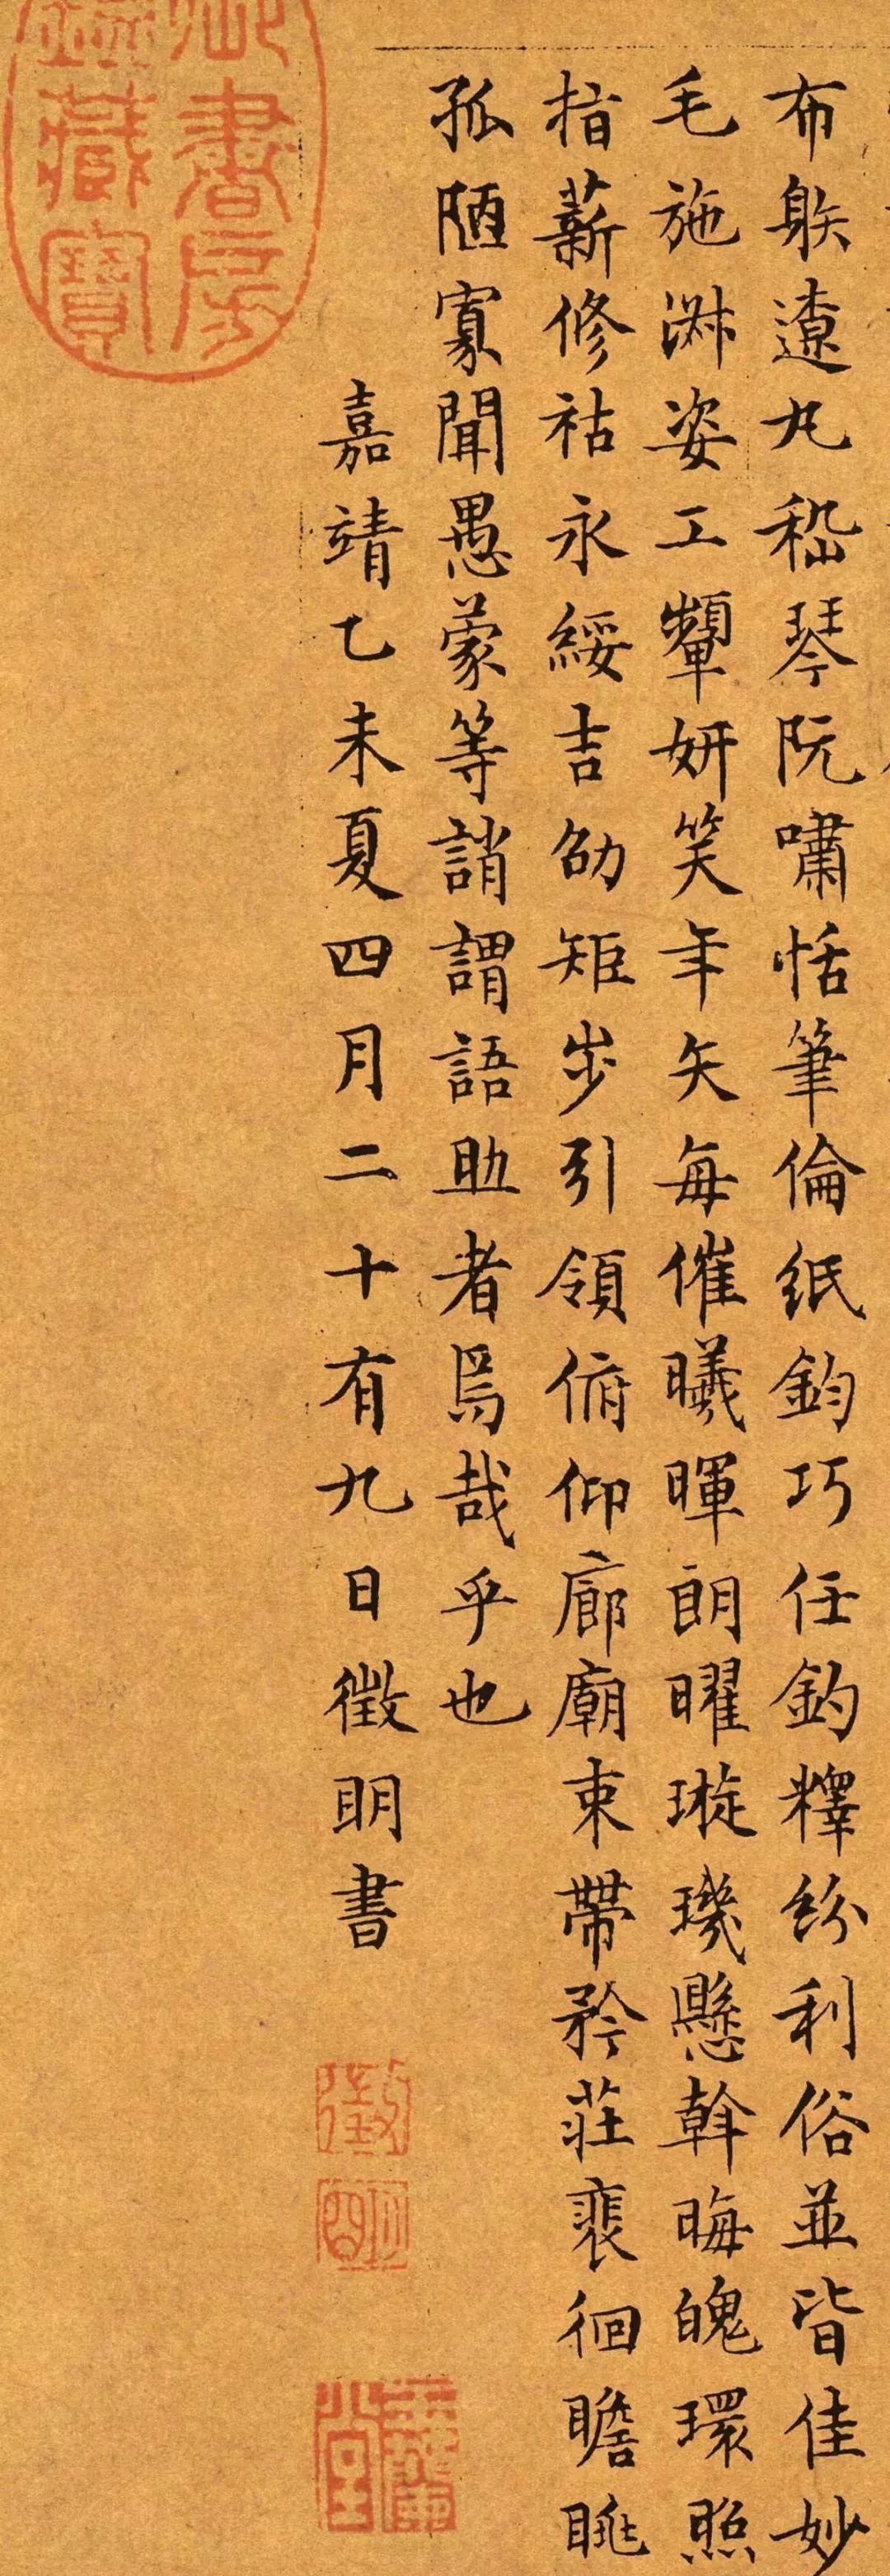 布䠶遼丸嵇琴阮嘯恬筆倫紙鈞巧任釣釋紛利俗並皆佳妙
毛施淑姿工顰妍笑年矢每催曦暉朗曜璇璣懸斡晦魄環照
指薪修祜永綏吉劭矩步引領俯仰廊廟束帶矜莊裴徊瞻眺
孤陋寡聞愚蒙等誚謂語助者焉哉乎也
嘉靖乙未夏四月二十有九日徵明書
徵明
玉蘭堂
御書房
鑑藏寶